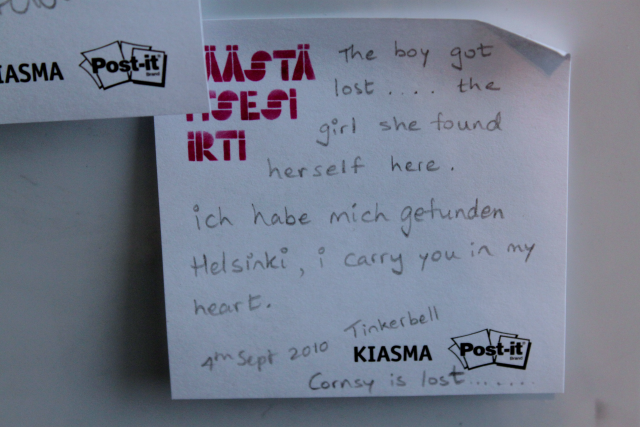 KIASMA Post-it
Brand
ÄÄSTÄ
TSESI
IRTI
The boy got
lost.... the
girl she found
herself here.
ich habe mich gefunden
Helsinki, i carry you in my
heart.
Tinkerbell
4th Sept 2010
KIASMA Post-it
Brand
Cornsy is lost.......